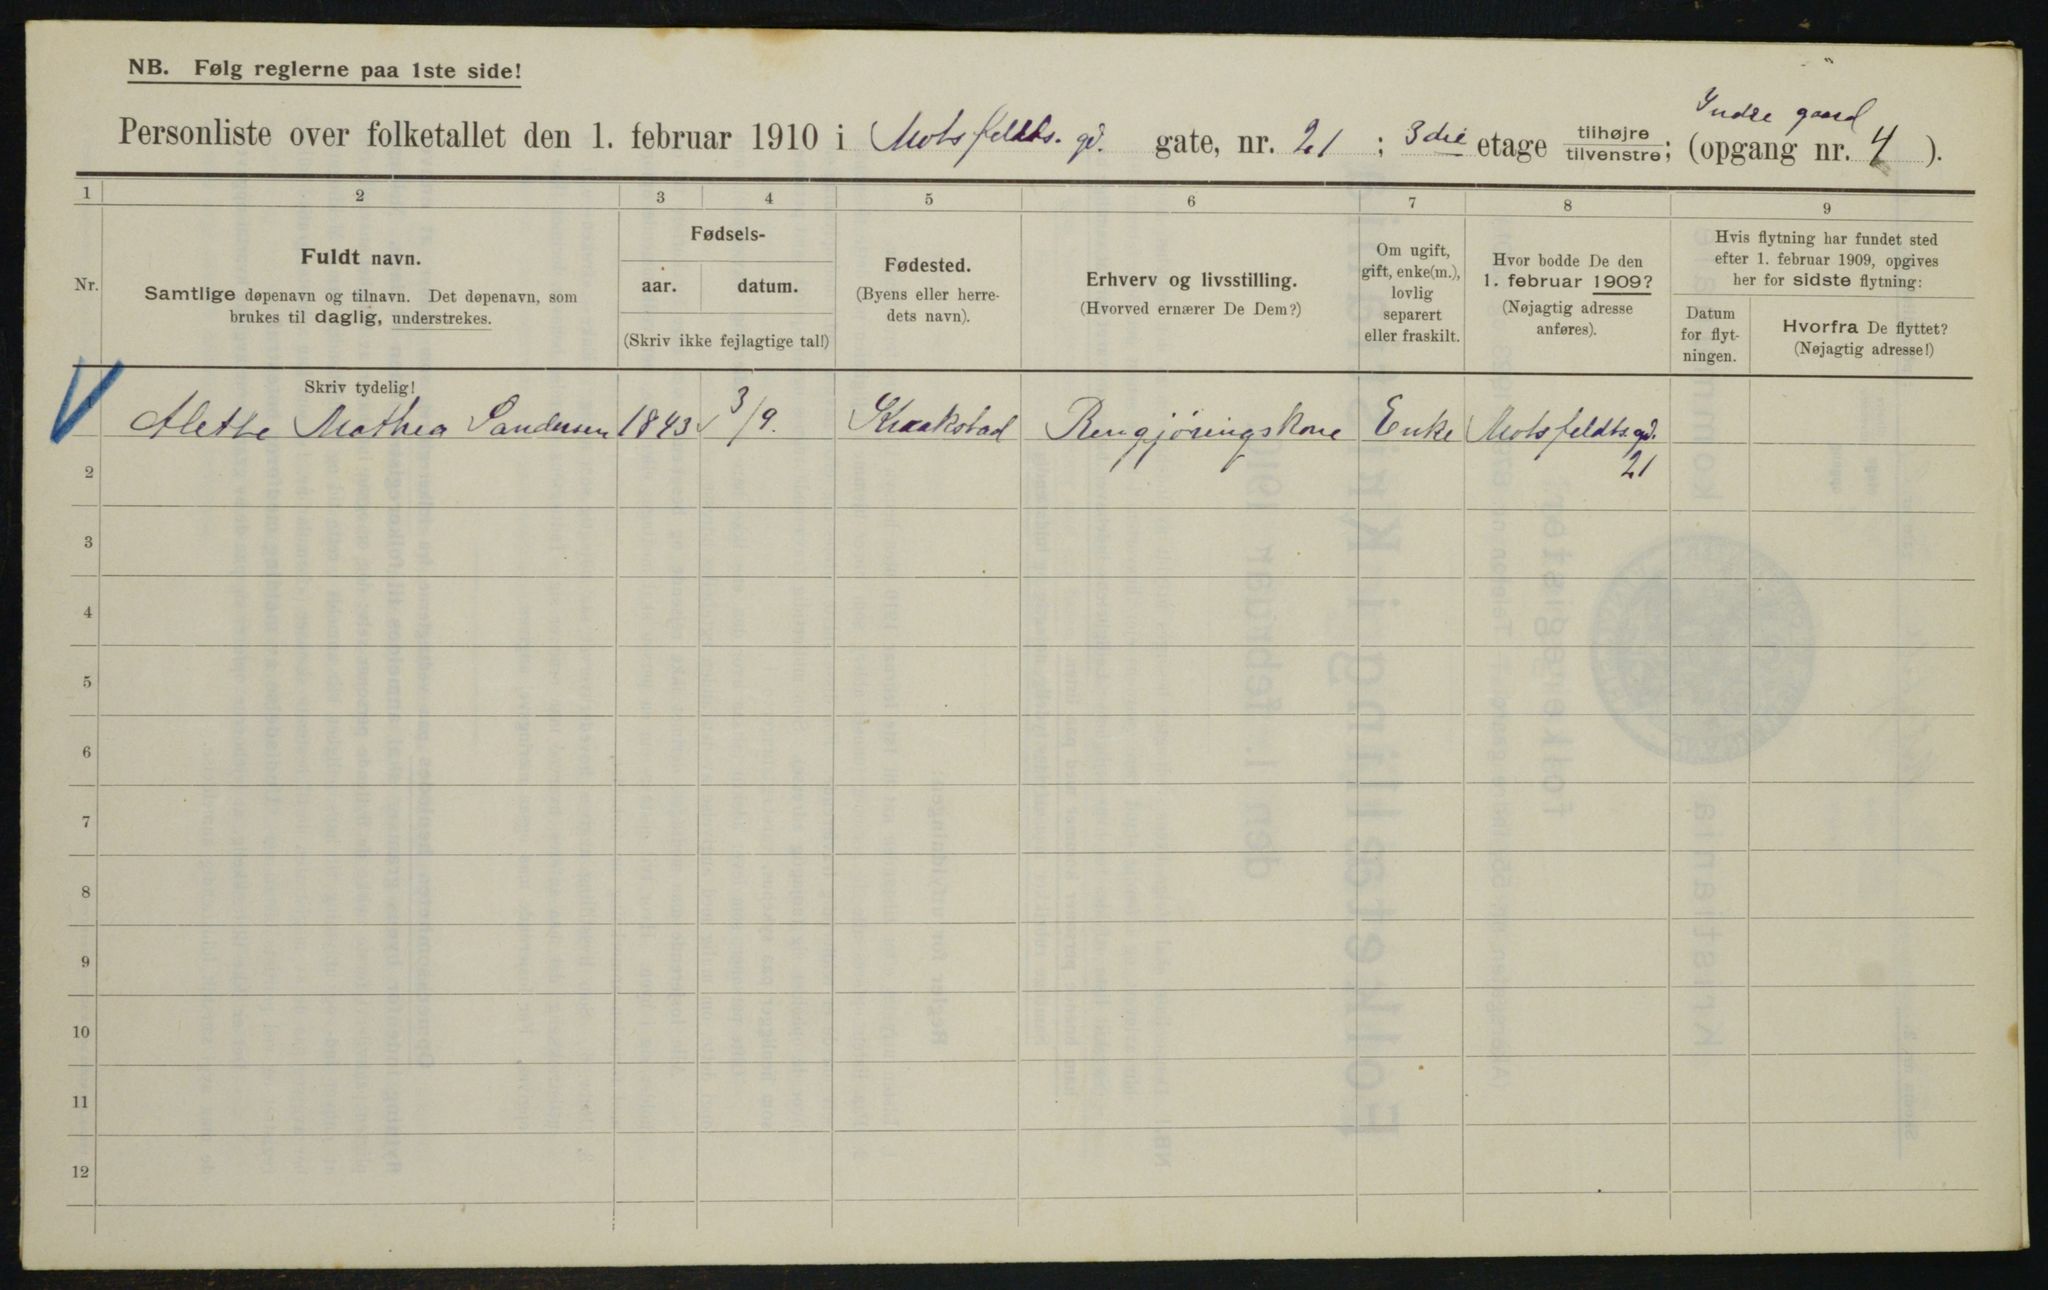 NB. Følg reglerne paa 1ste side!
Yndre gaard
Personliste over folketallet den 1. februar 1910 i Motsfeldts. gd. gate, nr. 21 ; 3die etage tilhøjre/tilvenstre; (opgang nr. 4 ).
1 2 3 4 5 6 7 8 9
Nr.
Fuldt navn.
Samtlige døpenavn og tilnavn. Det døpenavn, som
brukes til daglig, understrekes.
Fødsels-
aar. datum.
(Skriv ikke fejlagtige tal!)
Fødested.
(Byens eller herre-
dets navn).
Erhverv og livsstilling.
(Hvorved ernærer De Dem?)
Om ugift,
gift, enke(m.),
lovlig
separert
eller fraskilt.
Hvor bodde De den
1. februar 1909?
(Nøjagtig adresse
anføres).
Hvis flytning har fundet sted
efter 1. februar 1909, opgives
her for sidste flytning:
Datum
for flyt-
ningen.
Hvorfra De flyttet?
(Nøjagtig adresse!)
Skriv tydelig!
Alethe Mathea Sandersen 1843 3/9. Kraakstad Rengjøringskone Enke Motsfeldts. gd.
21
2
3
4
5
6
7
8
9
10
11
12